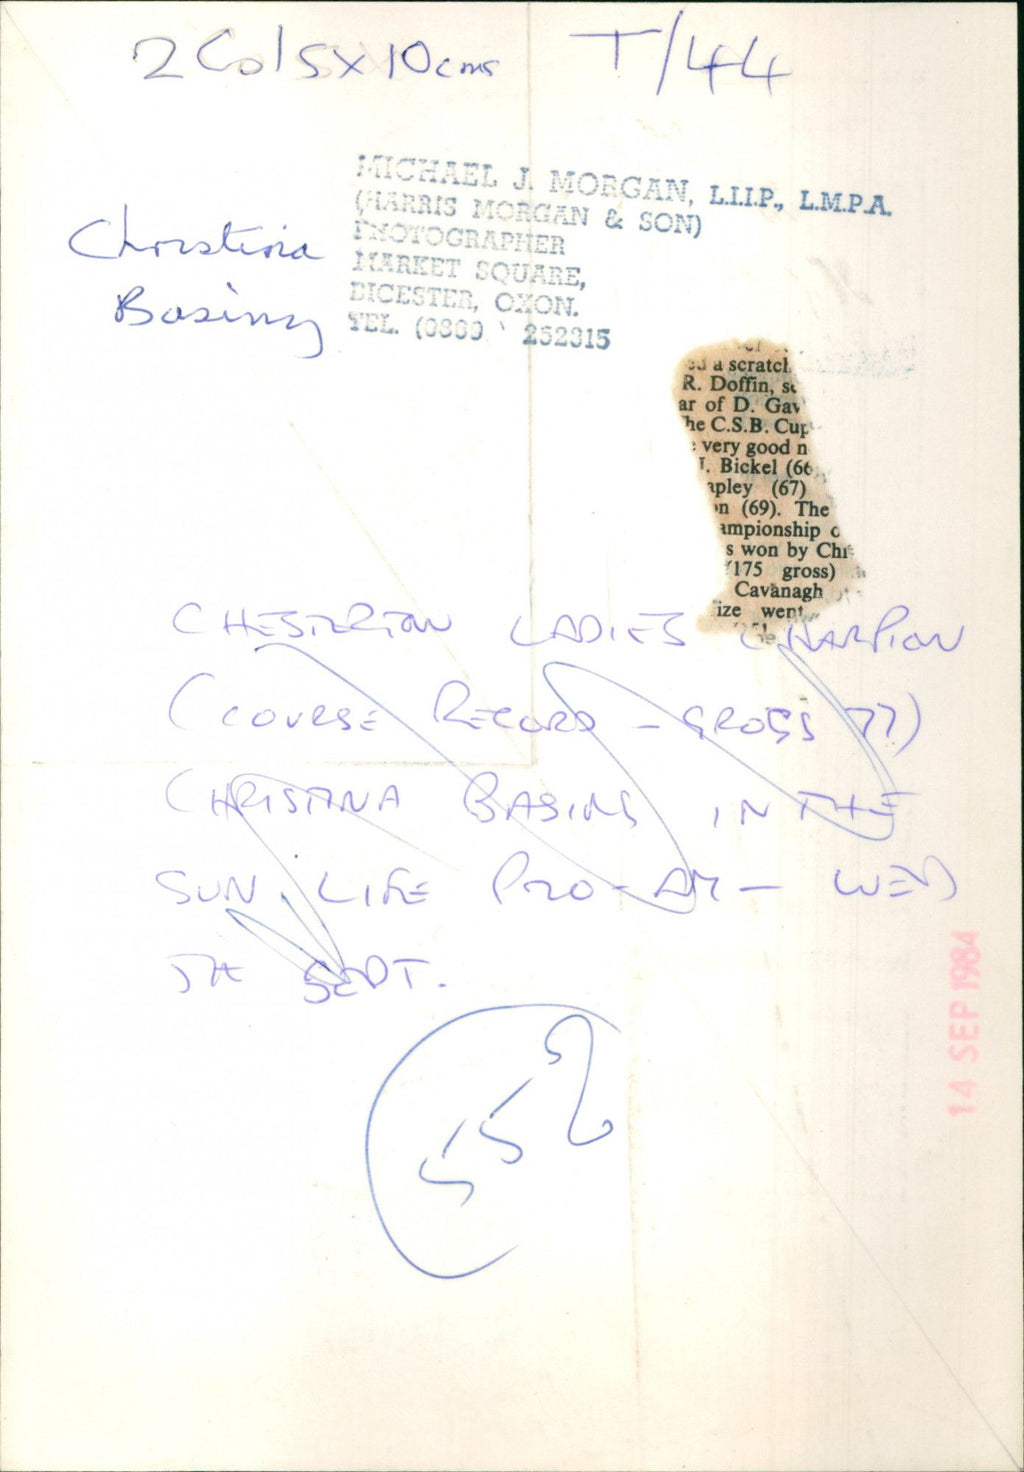 2 Cols x 10cms T/44
MICHAEL J. MORGAN, L.I.I.P., L.M.P.A.
(HARRIS MORGAN & SON)
PHOTOGRAPHER
MARKET SQUARE,
BICESTER, OXON.
TEL. (0869 252315
Christina
Basing
a scratch
R. Doffin, s
ar of D. Gav
he C.S.B. Cup
very good n
. Bickel (66
apley (67)
n (69). The
ampionship o
s won by Chi
(175 gross)
Cavanagh
ize went
CHESTERTON LADIES CHAMPION
(COURSE RECORD - GROSS 77)
CHRISTINA BASING IN THE
SUN LIFE PRO-AM - WED
5TH SEPT.
14 SEP 1984